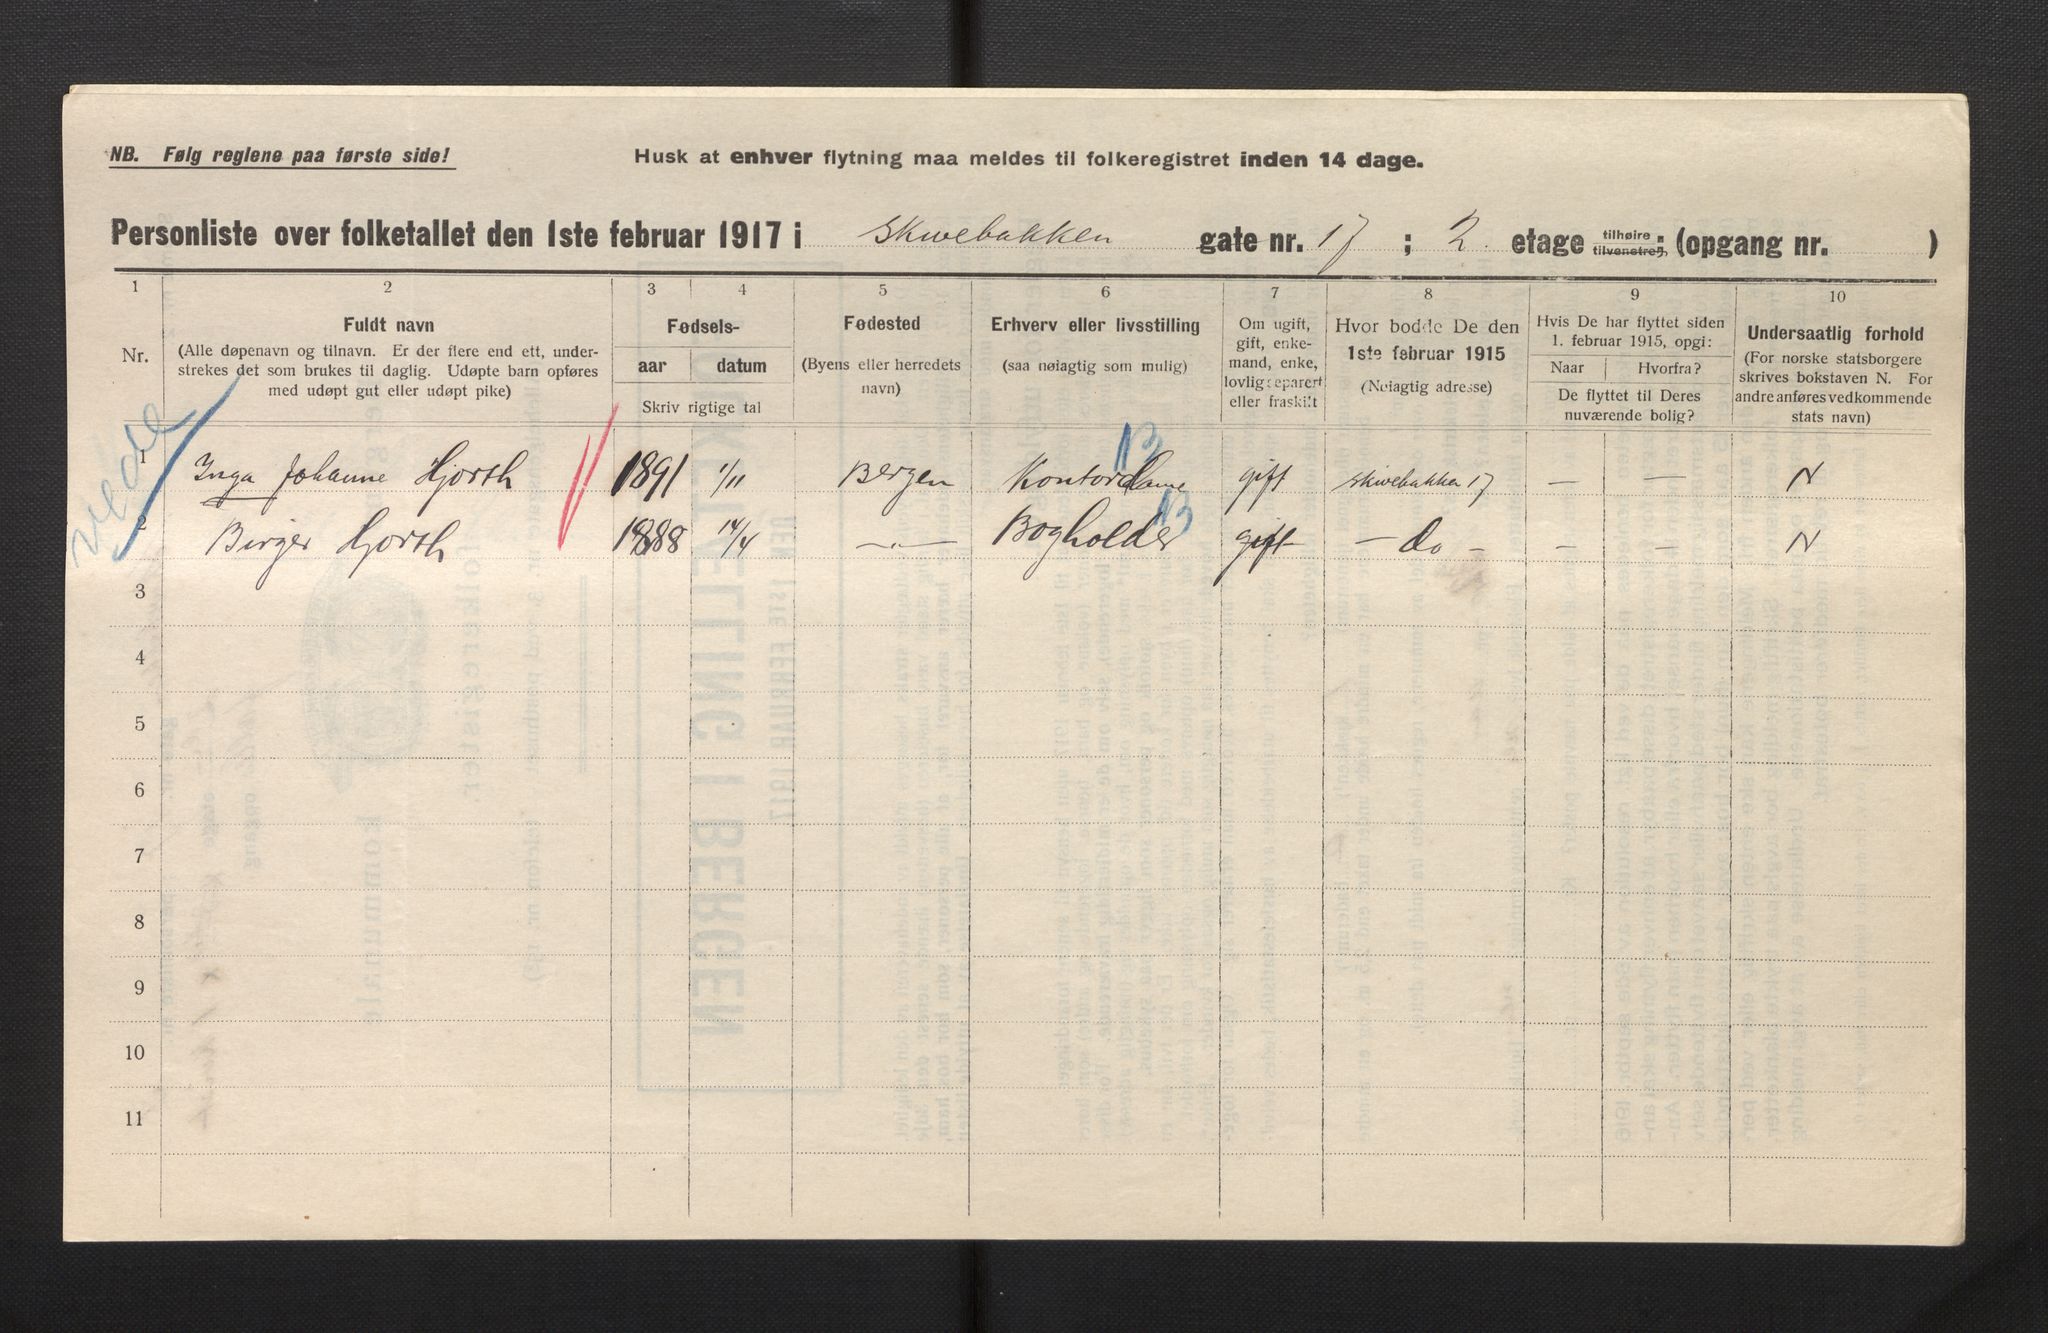 NB. Følg reglene paa første side!
Husk at enhver flytning maa meldes til folkeregistret inden 14 dage.
Personliste over folketallet den 1ste februar 1917 i Skivebakken gate nr. 17 ; 2 etage tilhøire tilvenstre ; (opgang nr. )
1 2 3 4 5 6 7 8 9 10
Nr.
Fuldt navn
(Alle døpenavn og tilnavn. Er der flere end ett, under-
strekes det som brukes til daglig. Udøpte barn opføres
med udøpt gut eller udøpt pike)
Fødsels-
aar datum
Skriv rigtige tal
Fødested
(Byens eller herredets
navn)
Erhverv eller livsstilling
(saa nøiagtig som mulig)
Om ugift,
gift, enke-
mand, enke,
lovlig separert
eller fraskilt
Hvor bodde De den
1ste februar 1915
(Nøiagtig adresse)
Hvis De har flyttet siden
1. februar 1915, opgi:
Naar Hvorfra?
De flyttet til Deres
nuværende bolig?
Undersaatlig forhold
(For norske statsborgere
skrives bokstaven N. For
andre anføres vedkommende
stats navn)
1 Inga Johanne Hjorth 1891 1/11 Bergen Kontordame gift Skivebakken 17 — — N
2 Birger Hjorth 1888 14/4 —"— Bogholder gift — do — — — N
3
4
5
6
7
8
9
10
11